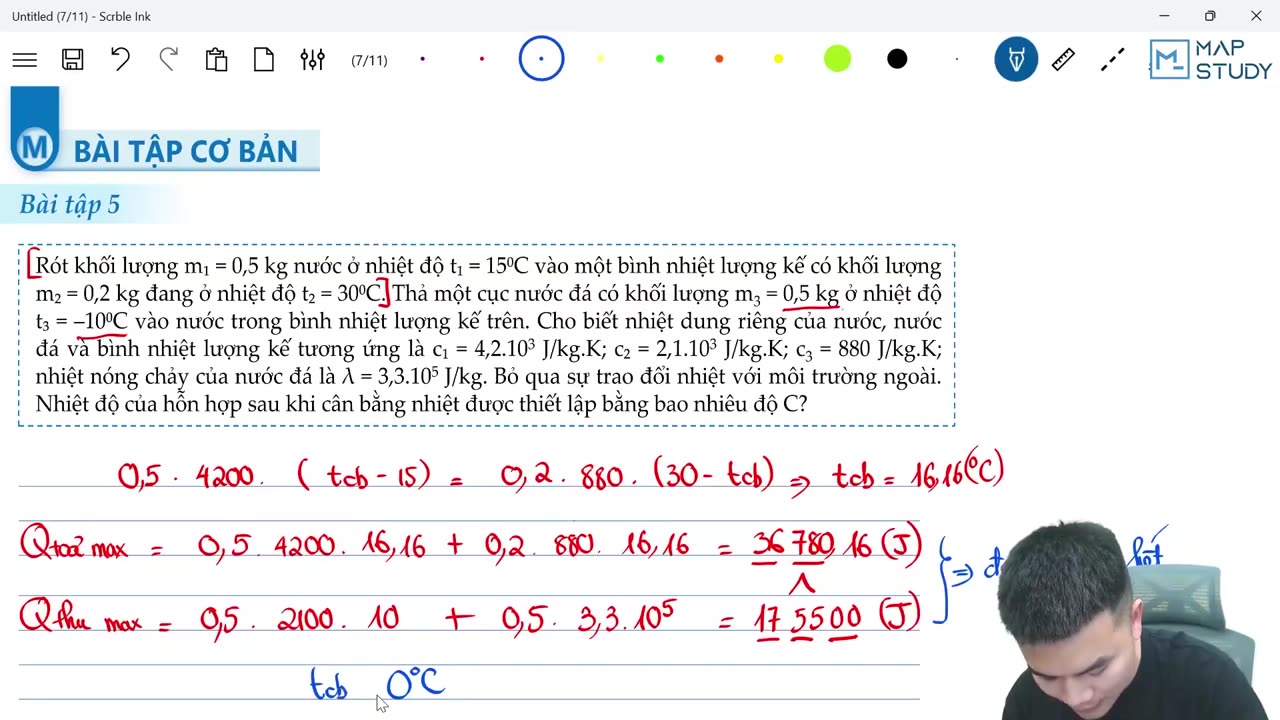 Untitled (7/11) - Scrble Ink
(7/11)
MAP
STUDY
M
BÀI TẬP CƠ BẢN
Bài tập 5
Rót khối lượng m₁ = 0,5 kg nước ở nhiệt độ t₁ = 15⁰C vào một bình nhiệt lượng kế có khối lượng
m₂ = 0,2 kg đang ở nhiệt độ t₂ = 30⁰C. Thả một cục nước đá có khối lượng m₃ = 0,5 kg ở nhiệt độ
t₃ = –10⁰C vào nước trong bình nhiệt lượng kế trên. Cho biết nhiệt dung riêng của nước, nước
đá và bình nhiệt lượng kế tương ứng là c₁ = 4,2.10³ J/kg.K; c₂ = 2,1.10³ J/kg.K; c₃ = 880 J/kg.K;
nhiệt nóng chảy của nước đá là λ = 3,3.10⁵ J/kg. Bỏ qua sự trao đổi nhiệt với môi trường ngoài.
Nhiệt độ của hỗn hợp sau khi cân bằng nhiệt được thiết lập bằng bao nhiêu độ C?
0,5 . 4200. ( tcb - 15) = 0,2 . 880 . (30 - tcb) => tcb = 16,16 (°C)
Qtoả max = 0,5 . 4200 . 16,16 + 0,2 . 880 . 16,16 = 36 780,16 (J)
Qthu max = 0,5 . 2100 . 10 + 0,5 . 3,3.10⁵ = 17 5500 (J)
tcb 0°C